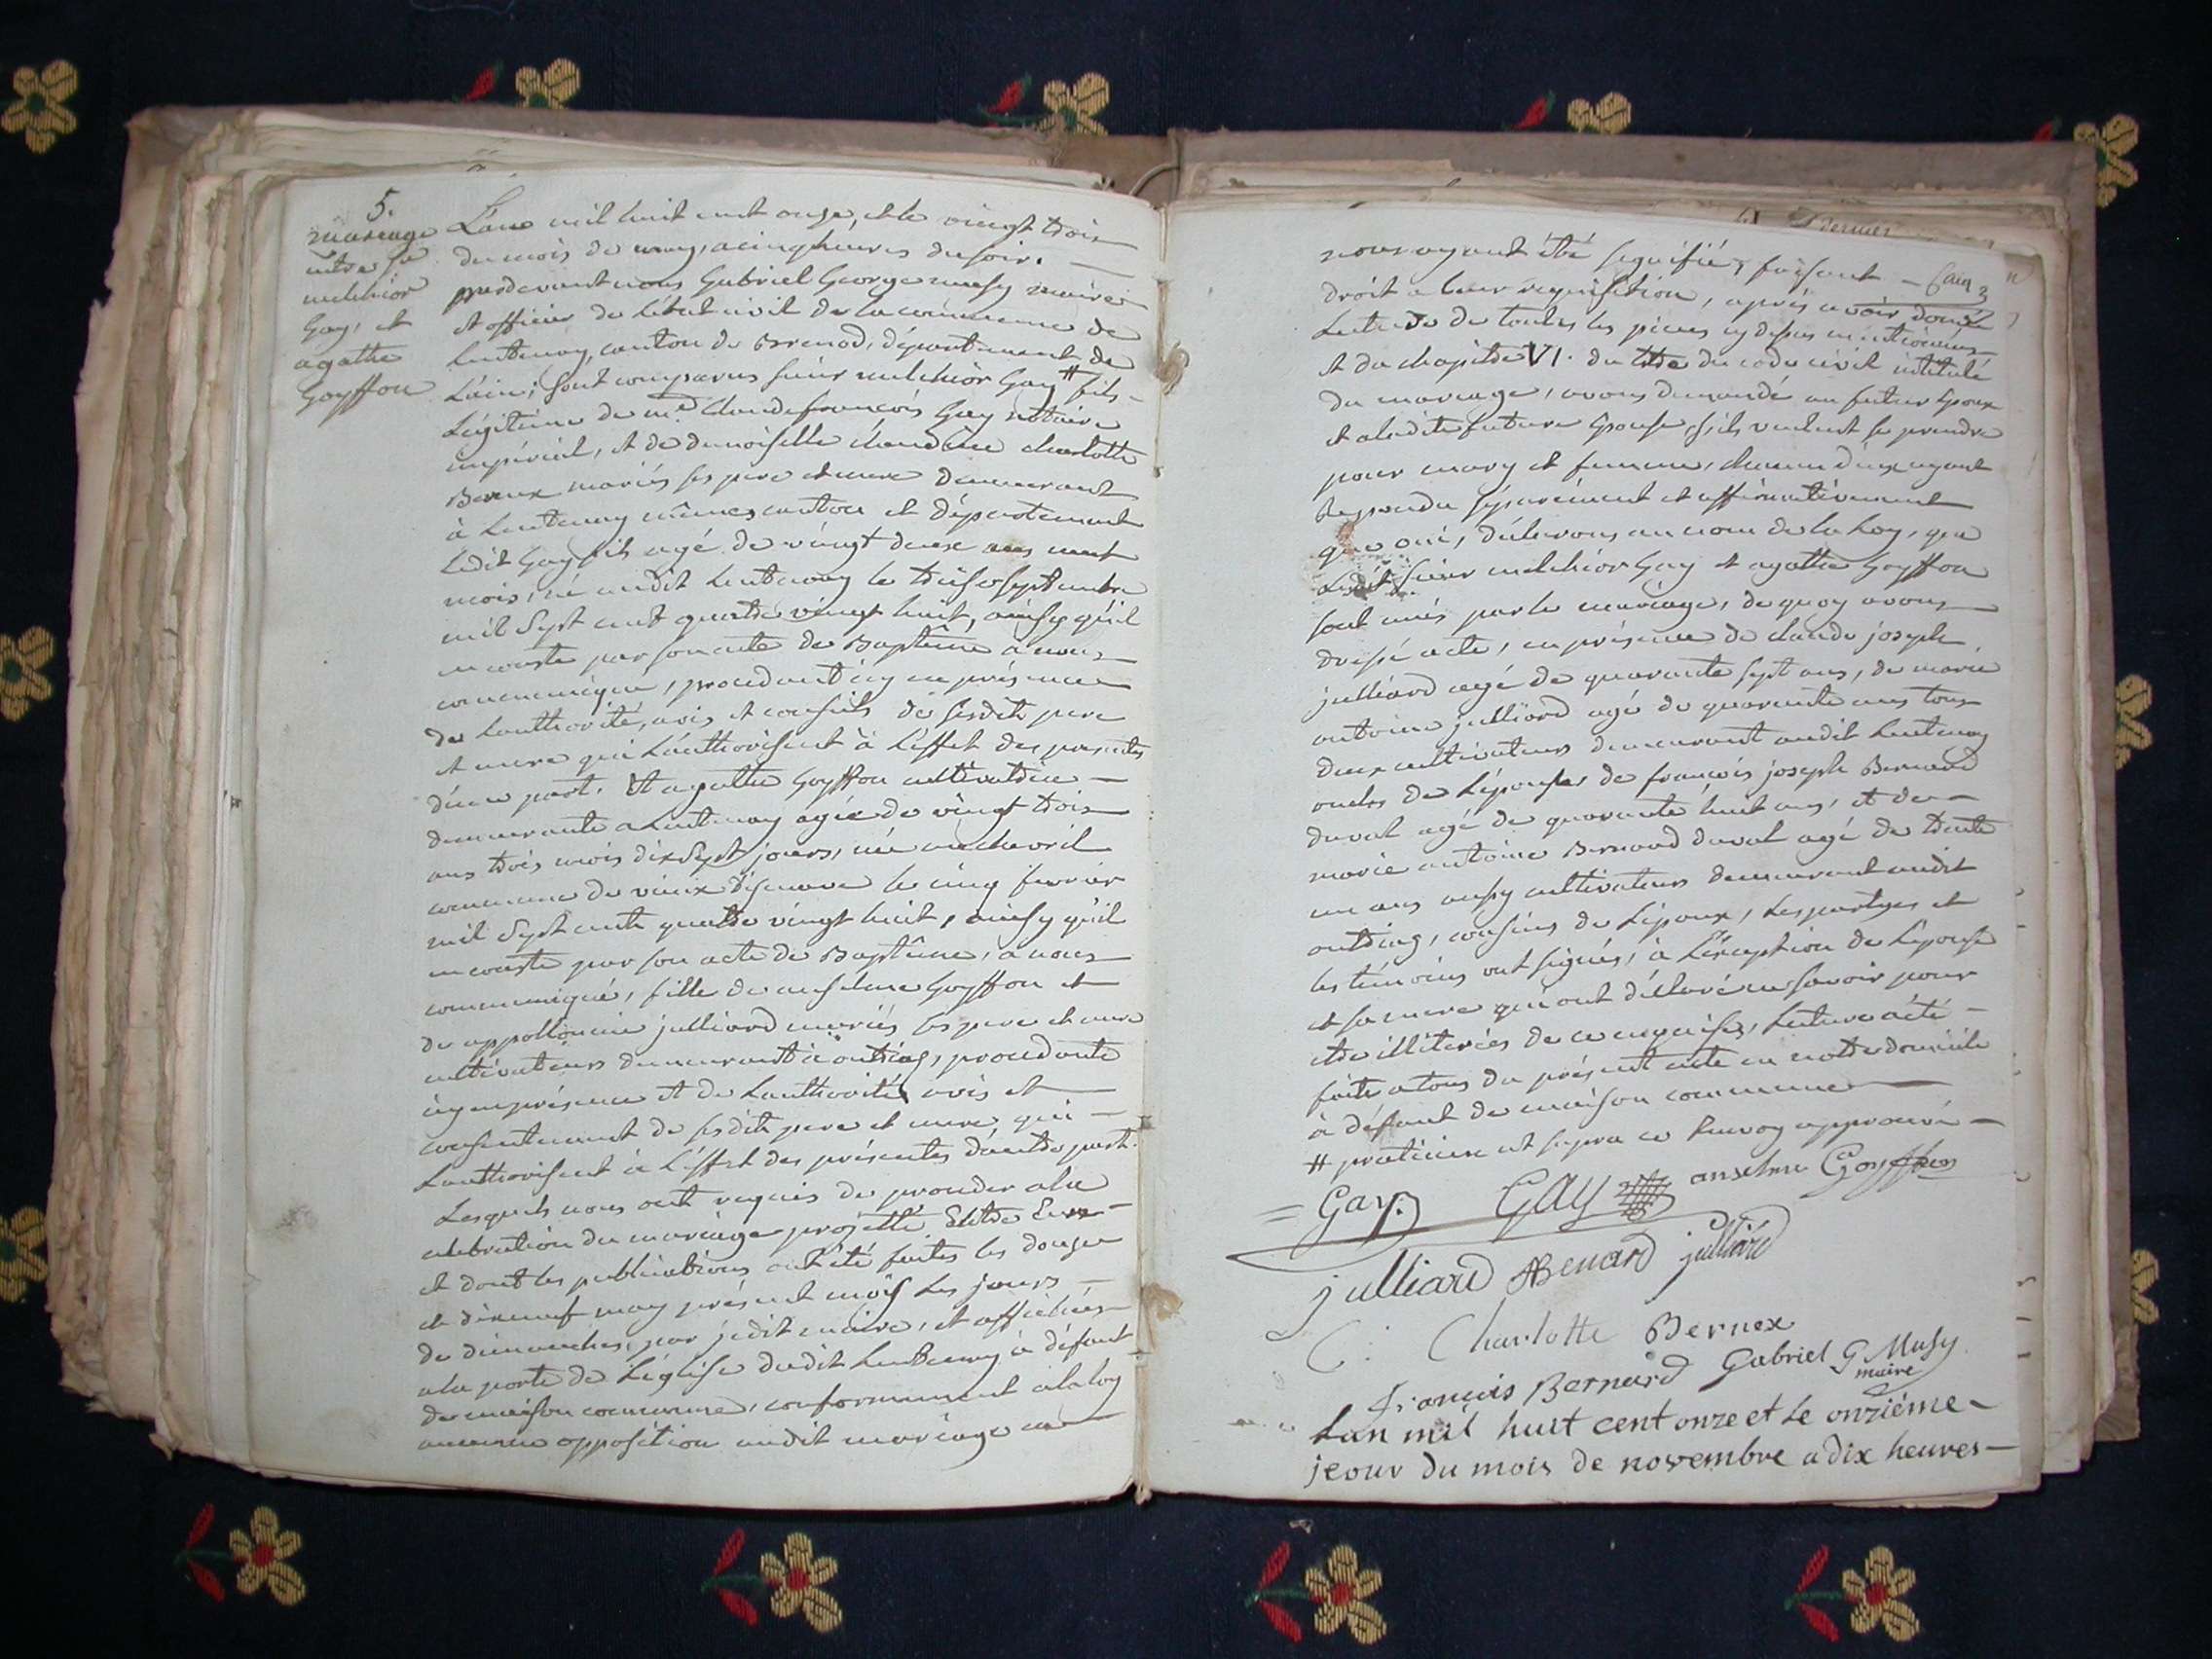 5.
mariage
entre sr
melchior
Gay, et
agathe
Goyffon
L'an mil huit cent onze, et le vingt trois
du mois de may, a cinq heures du soir. —
pardevant nous Gabriel George musy maire
et officier de l'état civil de la commune de
Lantenay, canton de Brenod, département de
L'ain; sont comparus sieur melchior Gay # fils
Légitime de me Claude françois Gay notaire
impérial, et de demoiselle claudine charlotte
Bernex mariés ses pere et mere demeurant
à Lantenay mêmes canton et département
Ledit Gay fils agé de vingt deux ans
mois, né audit Lantenay le treise septembre
mil sept cent quatre vingt huit, ainsy qu'il
en conste par son acte de Baptême a nous
communiqué, procedant icy en présence
de Lauthorité, avis et conseils de sesdits pere
et mere qui Lauthorisent à L'effet des presentes
d'une part. Et agathe Goyffon cultivatrice —
demeurante a Lantenay agée de vingt trois
ans trois mois dix sept jours, née
commune de vieux d'isenave le cinq fevrier
mil sept cents quatre vingt huit, ainsy qu'il
en conste par son acte de Baptême, a nous
communiqué, fille de anselme Goyffon et
de appollonie julliard mariés ses pere et mere
cultivateurs demeurant à outriaz, procedante
icy en présence et de Lauthorité avis et
consentement de sesdits pere et mere, qui —
Lauthorisent à L'effet des présentes d'autre part.
Lesquels nous ont requis de proceder a la
celebration du mariage projetté Entre Eux —
et dont les publications ont été faites les douze
et dixneuf may présent mois les jours —
de dimanches, par jedit maire, et affichées
a la porte de L'église dudit Lantenay à défaut
de maison commune, conformement a la loy
aucune opposition audit mariage ne
nous ayant été signifiée, faisant —
droit a leur requisition, après avoir donné
Lecture de toutes les pieces cy dessus mentionnées
et du chapitre VI. du titre du code civil intitulé
du mariage, avons demandé au futur Epoux
et a ladite future Epouse, s'ils veulent se prendre
pour mary et femme, chacun d'eux ayant
Repondu séparément et affirmativement
que oui, déclarons au nom de la Loy, que
Ledit sieur melchior Gay et agathe Goyffon
sont unis par le mariage, de quoy avons
dressé acte, en présence de claude joseph
julliard agé de quarante sept ans, de marie
antoine julliard agé de quarante ans tous
deux cultivateurs demeurant audit Lantenay
oncles de L'épouse, de françois joseph Bernard
duval agé de quarante huit ans, et de —
marie antoine Bernard duval agé de trente
un ans aussy cultivateurs demeurant audit
outriaz, cousins de L'époux, Les parties et
les témoins ont signés, à L'exception de L'epouse
et sa mere qui ont déclaré ne savoir pour
etre illiterées de ce enquises, Lecture a été —
faite a tous du présent acte en notre domicile
à défaut de maison commune —
# praticien ut supra ce renvoy approuvé —
= Gay. GAY anselme Goyffon
julliard ABenard julliard
C. Charlotte Bernex
François Bernard Gabriel G Musy
maire
Lan mil huit cent onze et le onziéme —
jeour du mois de novembre a dix heures —